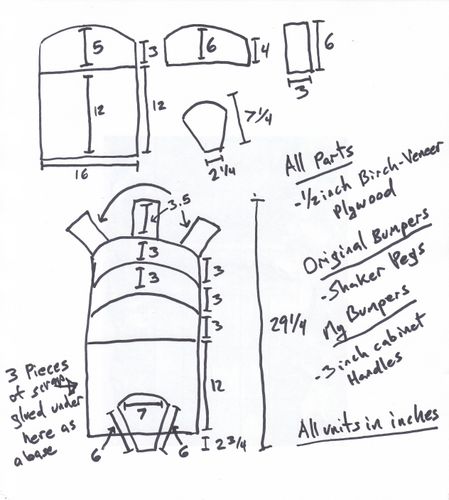 5
3
6
4
6
3
12
12
16
7 1/4
2 1/4
All Parts
- 1/2 inch Birch-Veneer
Plywood
Original Bumpers
- Shaker Pegs
My Bumpers
- 3 inch cabinet
Handles
All units in inches
3.5
3
3
3
3
3
29 1/4
12
7
6
6
2 3/4
3 Pieces
of scrap
glued under
here as
a base